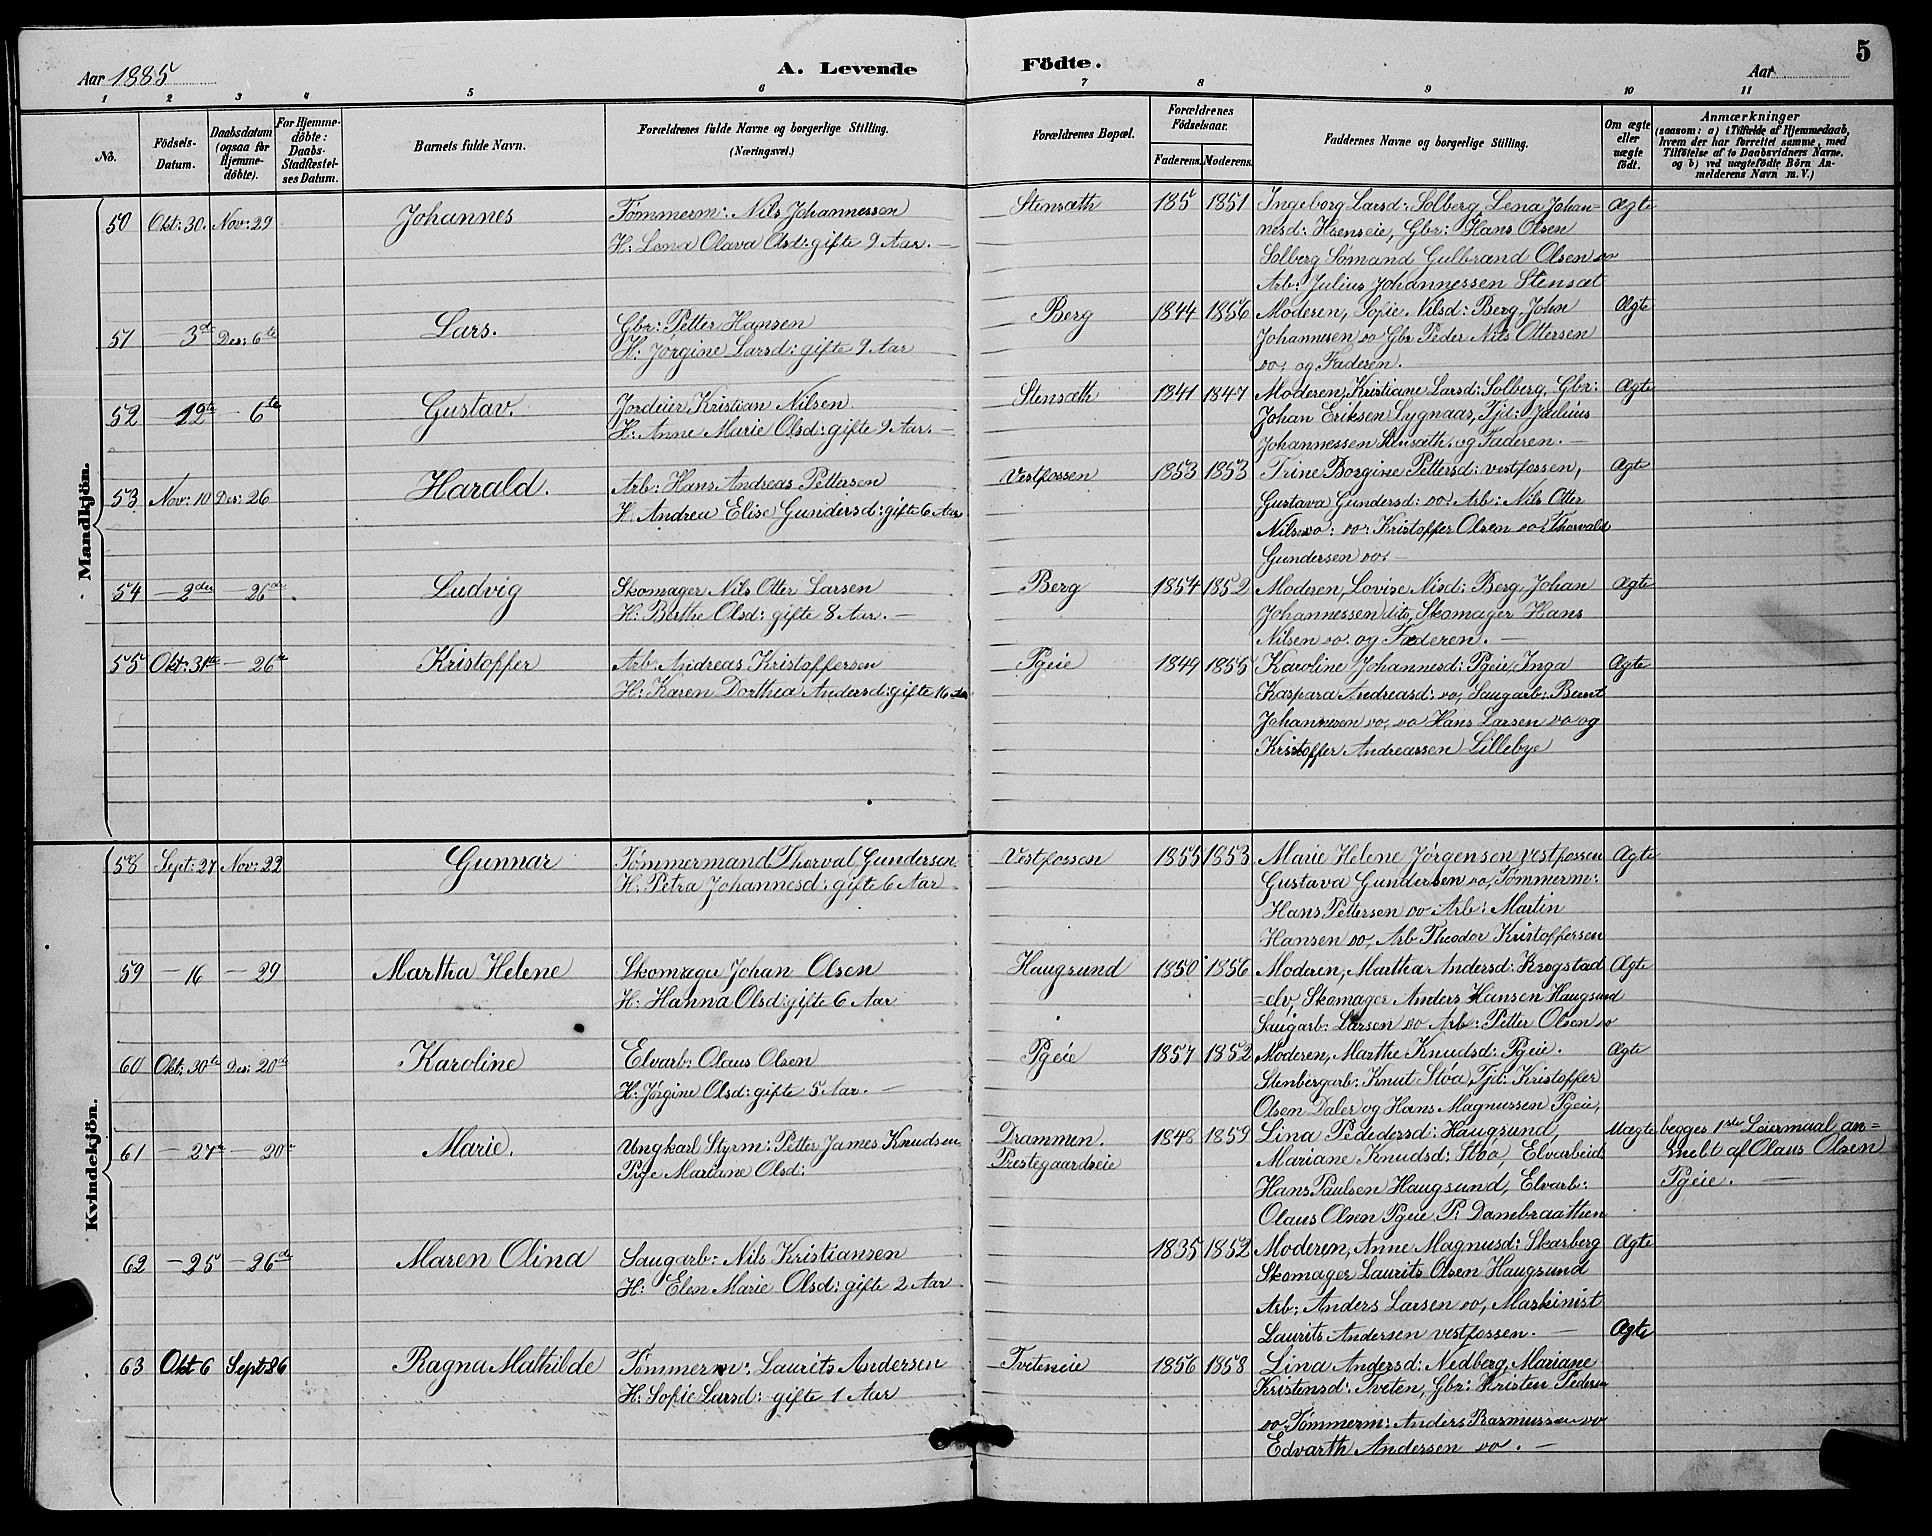 5
Aar 1885 A. Levende Födte. Aar
1 2 3 4 5 6 7 8 9 10 11
No.
Födsels-
Datum.
Daabsdatum
(ogsaa for
Hjemme-
döbte).
For Hjemme-
döbte:
Daabs-
Stadfæstel-
ses Datum.
Barnets fulde Navn.
Forældrenes fulde Navne og borgerlige Stilling.
(Næringsvei.)
Forældrenes Bopæl.
Forældrenes
Födselsaar.
Faderens. Moderens.
Faddernes Navne og borgerlige Stilling.
Om ægte
eller
uægte
födt.
Anmærkninger
(saasom: a) i Tilfælde af Hjemmedaab,
hvem der har forrettet samme, med
Tilföielse af to Daabsvidners Navne,
og b) ved uægtefödte Börn An-
melderens Navn m. V.)
Mandkjön.
50 Okt: 30. Nov: 29 Johannes Tømmerm: Nils Johannessen Stensæth 185 1851 Ingeborg Larsd: Solberg Lena Johan- Ægte
H: Lena Olava Olsd: gifte 9 Aar. — nesd: Hoenseie, Gbr: Hans Olsen
Solberg Sømand Gulbrand Olsen do
Arb: Julius Johannessen Stensæt
51 — 3de Des: 6te Lars. Gbr: Petter Hansen Berg 1844 1856 Moderen, Sofie Nilsd: Berg, John Ægte
H: Jørgine Larsd: gifte 9 Aar Johannesen do Gbr Peder Nils Ottersen
do. og Faderen.
52 — 12te — 6te Gustav. Jordeier Kristian Nilsen Stensæth 1841 1847 Moderen, Kristiane Larsd: Solberg, Gbr: Ægte
H: Anne Marie Olsd: gifte 9 Aar. — Johan Eriksen Lygnaas, Tjd: Julius
Johannessen Stensæth. og Faderen. —
53 Nov: 10 Des: 26 Harald. Arb: Hans Andreas Pettersen Vestfossen 1853 1853 Trine Borgine Pettersd: vestfossen, Ægte
H. Andrea Elise Gundersd: gifte 6 Aar Gustava Gundersd: do. Arb: Nils Otter
Nilsen do: do: Kristoffer Olsen do. Thorvald
Gundersen do. —
54 — 2den — 26de Ludvig Skomager Nils Otter Larsen Berg 1854 1852 Moderen, Lovise Nisd: Berg, Johan Ægte
H: Berthe Olsd: gifte 8 Aar. — Johannessen dito, Skomager Hans
Nilsen do. og Faderen. —
55 Okt: 31te — 26de Kristoffer Arb: Andreas Kristoffersen Pgeie 1849 1855 Karoline Johannesd: Pgeie, Inga Ægte
H: Karen Dorthea Andersd: gifte 16 Aar Kaspara Andreasd: do, Saugarb: Bernt
Johannesen do, do Hans Larsen do og
Kristoffer Andreassen Lillebye
Kvindekjön.
58 Sept: 27 Nov: 22 Gunnar Tømmermand Thorval Gundersen Vestfossen 1855 1853 Marie Helene Jørgensen vestfossen Ægte
H: Petra Johannesd: gifte 6 Aar Gustava Gundersen do, Tømmerm:
Hans Pettersen do Arb: Martin
Hansen do, Arb Theodor Kristoffersen
59 — 16 — 29 Martha Helene Skomager Johan Olsen Haugsund 1850 1856 Moderen, Martha Andersd: Krogstad Ægte
H: Hanna Olsd: gifte 6 Aar =elv, Skomager Anders Hansen Haugsund
Saugarb: Larsen do Arb: Petter Olsen do
60 Okt: 30te Des: 20de Karoline Elvarb: Olaus Olsen Pgeie 1857 1852 Moderen, Marthe Knudsd: Pgeie. Ægte
H: Jørgine Olsd: gifte 5 Aar. — Stenbergarb: Knut Støa, Tjd: Kristoffer
Olsen Daler og Hans Magnussen Pgeie,
61 — 27de — 20de Marie. Ungkarl Styrm: Petter James Knudsen Drammen. 1848 1859 Lina Pedersd: Haugsund, Uægte begges 1ste Leiermaal an=
Pige Mariane Olsd: Prestegaardseie Mariane Knudsd: Støa, Elvarbeid: melt af Olaus Olsen
Hans Paulsen Haugsund, Elvarb: Pgeie. —
Olaus Olsen Pgeie P: Dambraathen
62 — 25 — 26de Maren Olina Saugarb: Nils Kristiansen 1835 1852 Moderen, Anne Magnusd: Skarberg Ægte
H: Elen Marie Olsd: gifte 2 Aar Skomager Laurits Olsen Haugsund
Arb: Anders Larsen do, Maskinist
Laurits Andersen vestfossen. — Ægte
63 Okt 6 Sept 86 Ragna Mathilde Tømmerm: Laurits Andersen Tveteneie 1856 1858 Lina Andersd: Nedberg, Mariane
H: Sofie Larsd: gifte 1 Aar Kristensd: Tveten, Gbr: Kristen Pedersen
do. Tømmerm: Anders Rasmussen do
Edvarth Andersen do. —